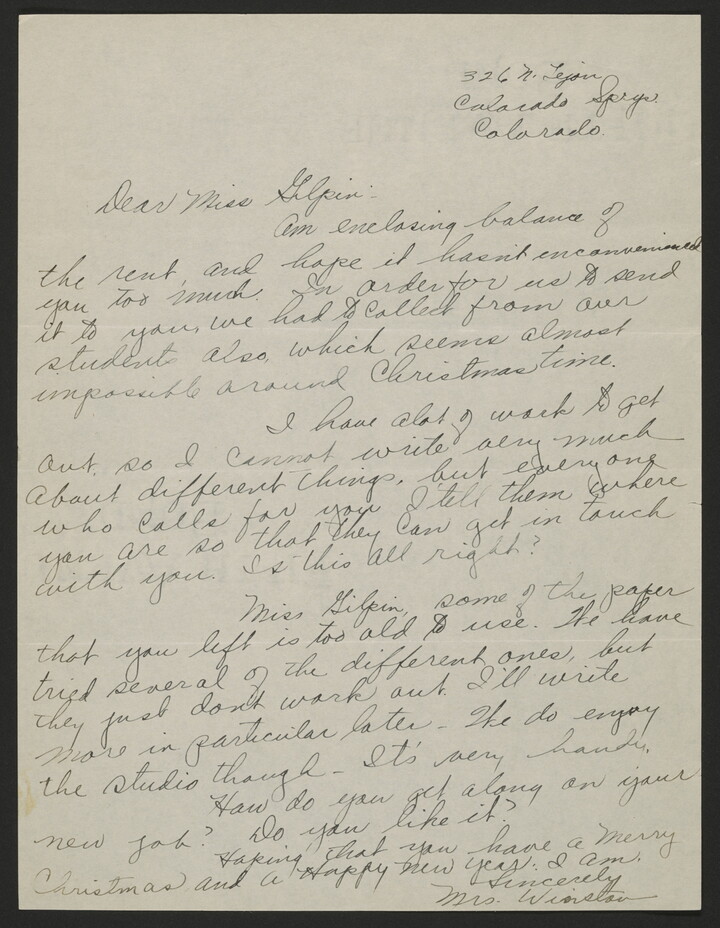 326 N. Tejon
Colorado Sprgs.
Colorado.
Dear Miss Gilpin:
Am enclosing balance of
the rent, and hope it hasn't enconvenienced
you too much. In order for us to send
it to you, we had to collect from our
students also, which seems almost
impossible around Christmas time.
I have alot of work to get
out, so I cannot write very much
about different things, but everyone
who calls for you I tell them where
you are so that they can get in touch
with you. Is this all right?
Miss Gilpin, some of the paper
that you left is too old to use. We have
tried several of the different ones, but
they just don't work out. I'll write
more in particular later - We do enjoy
the studio though - It's very handy.
How do you get along on your
new job? Do you like it?
Hoping that you have a Merry
Christmas and a Happy New Year. I am.
Sincerely
Mrs. Winston